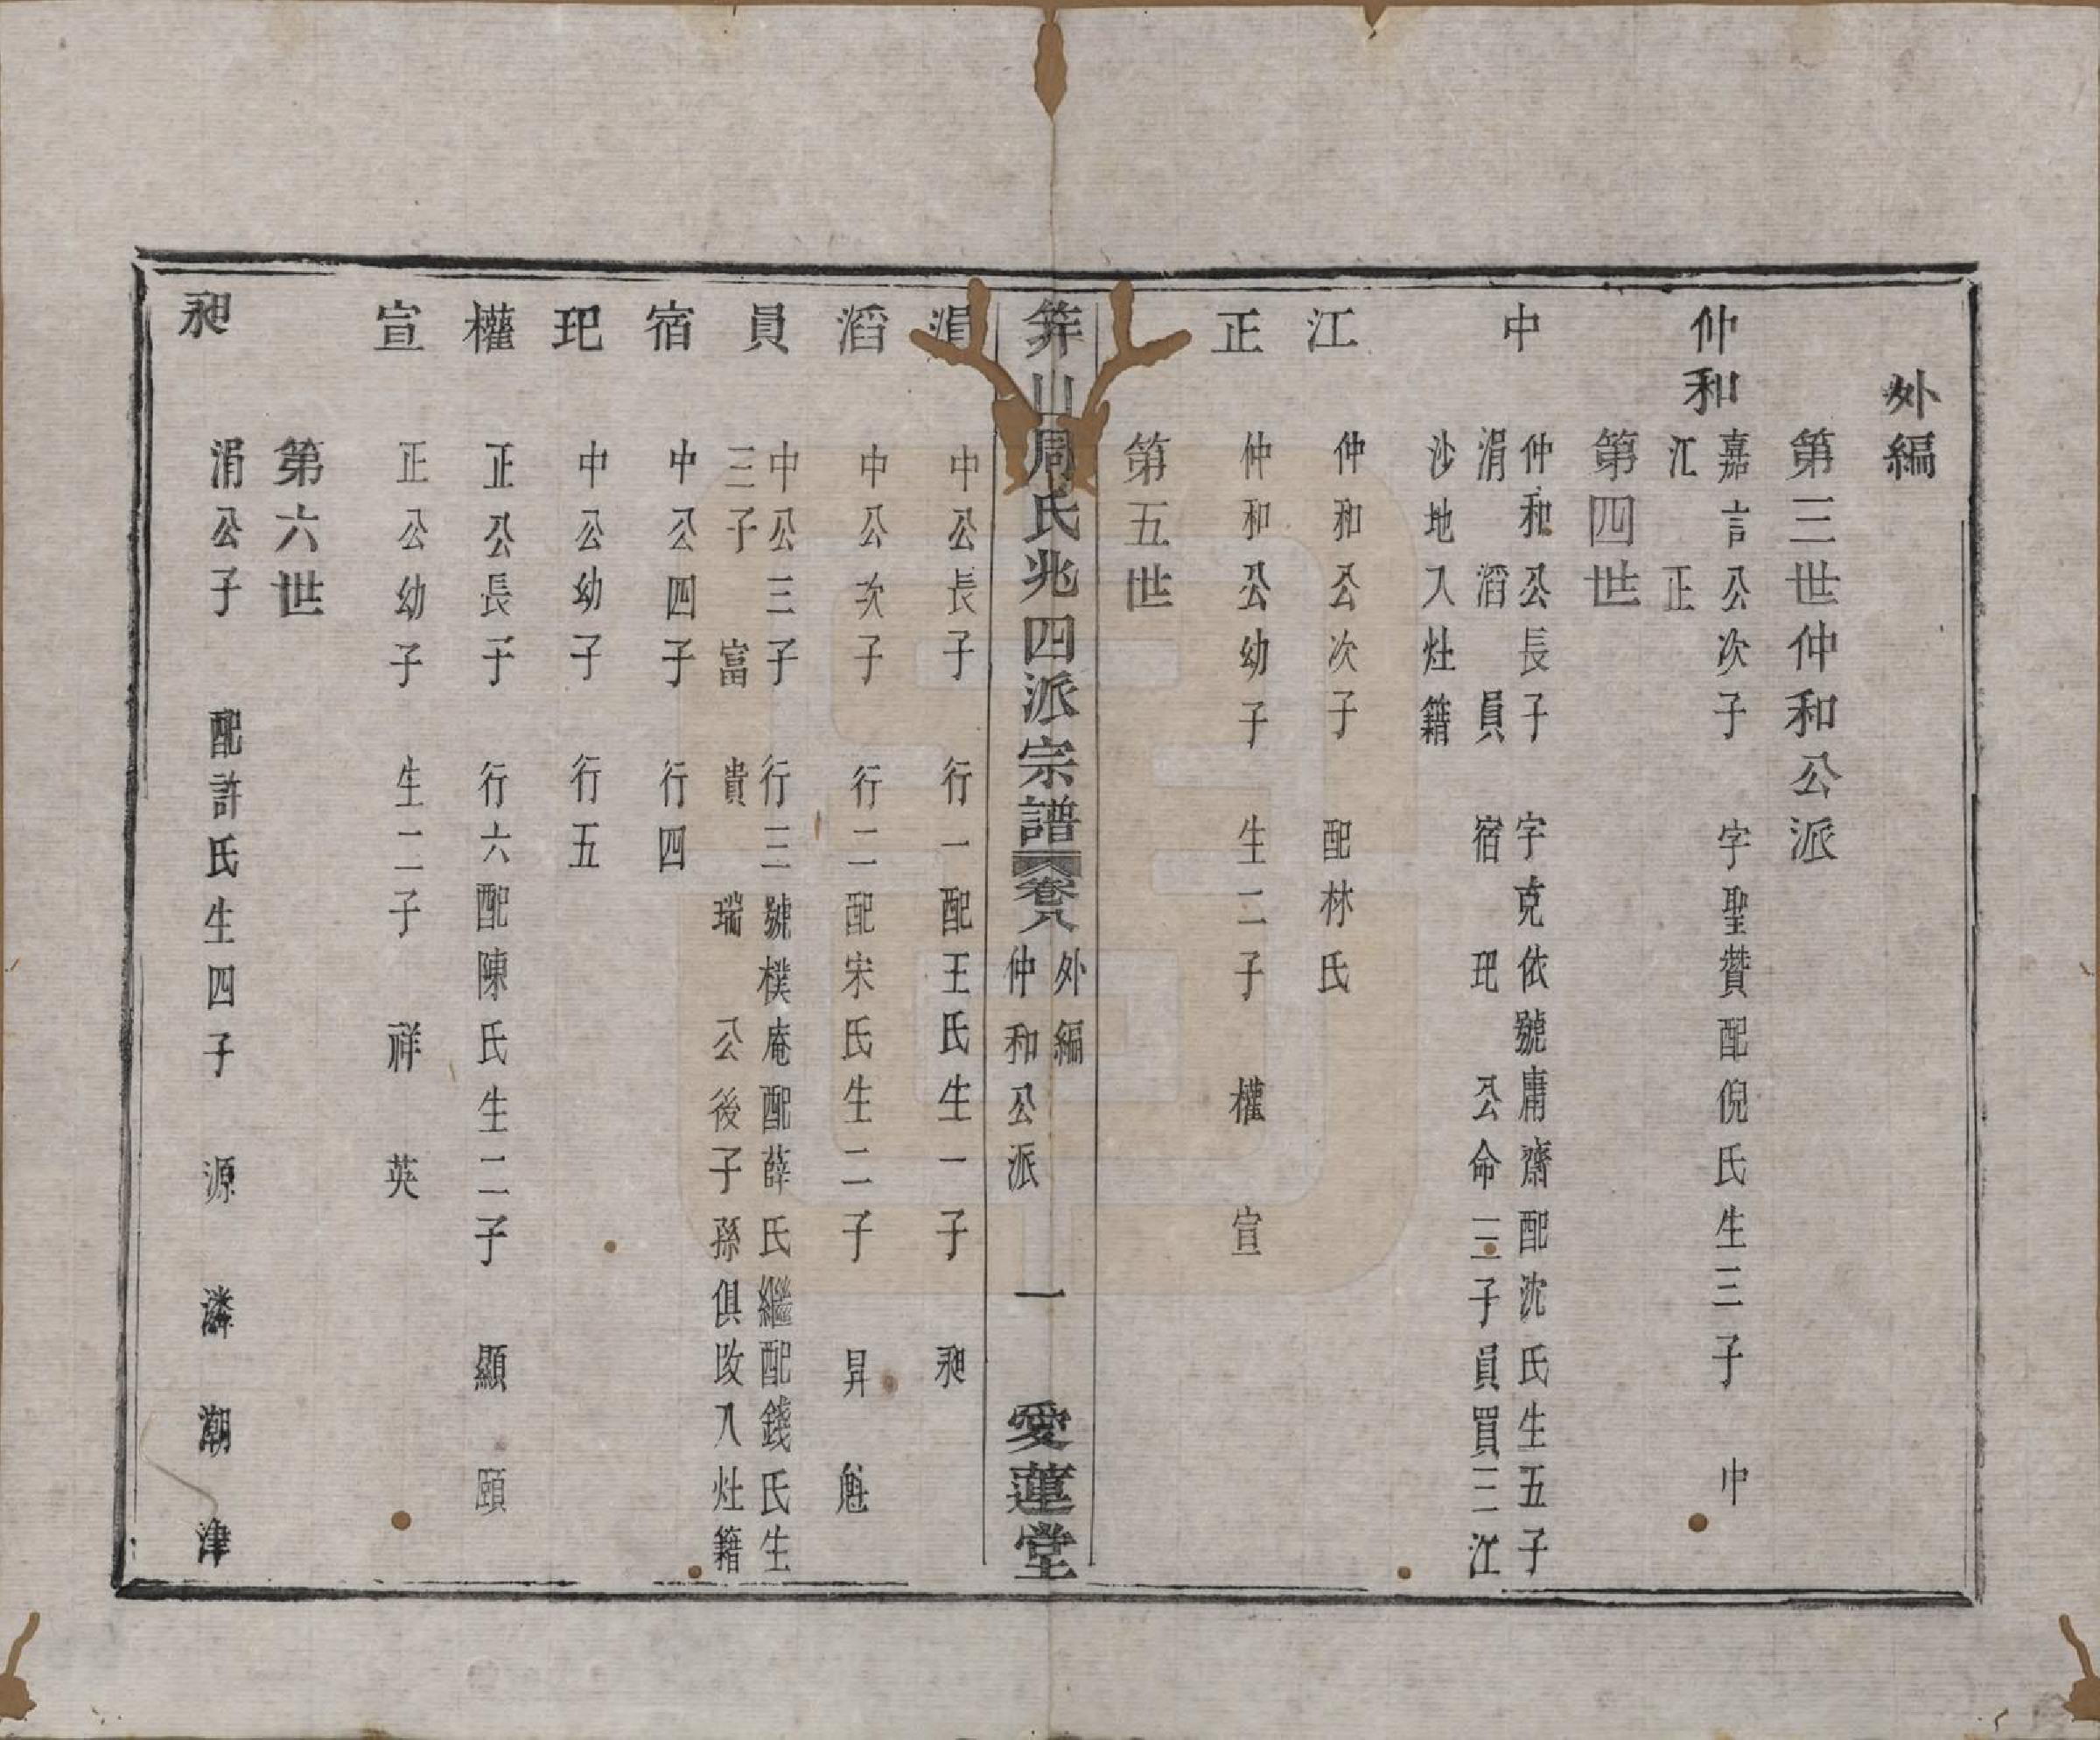 外編
第三世仲和公派
仲和 嘉言公次子 字聖贊配倪氏生三子 中
江 正
第四世
中 仲和公長子 字克依號庸齋配沈氏生五子
涓 滔 員 宿 玘 公命三子員買三江
沙地入灶籍
江 仲和公次子 配林氏
正 仲和公幼子 生二子 權 宣
第五世
筓山周氏兆四派宗譜 卷八 外編 仲和公派 一 愛蓮堂
涓 中公長子 行一配王氏生一子 昶
滔 中公次子 行二配宋氏生二子 昇 魁
員 中公三子 行三號樸庵配薛氏繼配錢氏生
三子 富 貴 瑞 公後子孫俱改入灶籍
宿 中公四子 行四
玘 中公幼子 行五
權 正公長子 行六配陳氏生二子 顯 頤
宣 正公幼子 生二子 祥 英
第六世
昶 涓公子 配許氏生四子 源 潾 潮 津